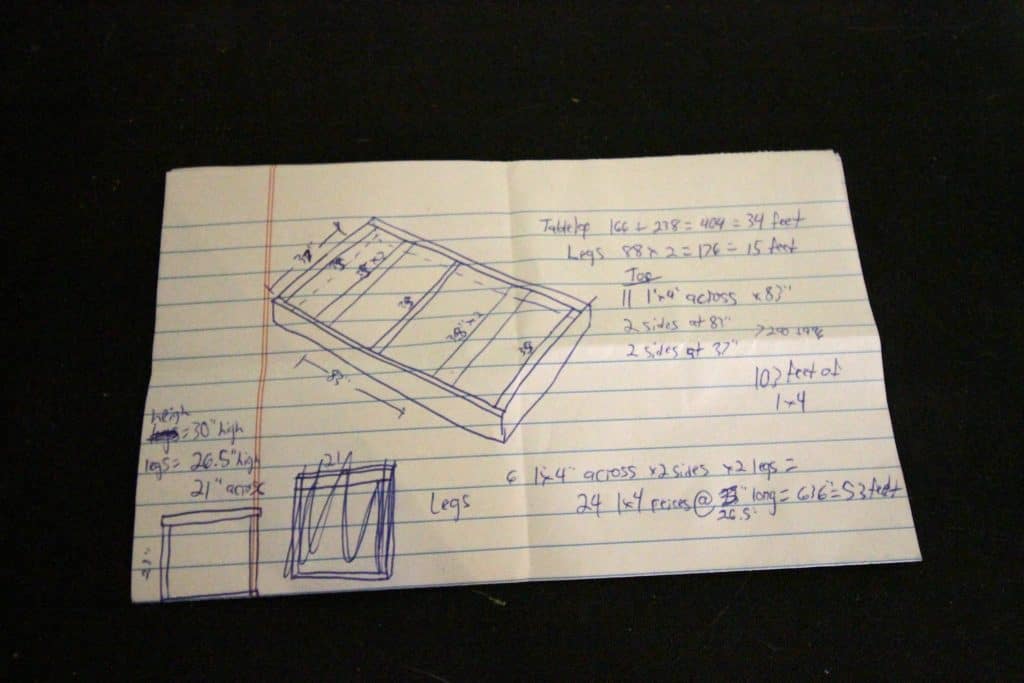 Tabletop 166 + 238 = 404 = 34 feet
Legs 88 x 2 = 176 = 15 feet
Top
11 1"x4" across x 83"
2 sides at 83"
2 sides at 37"
103 feet of
1x4
38" x 2
38" x 2
38
83"
heigh
= 30" high
legs = 26.5" high
21" across
21
Legs
6 1x4" across x2 sides x2 legs =
24 1x4 peices @ 26.5" long = 636" = 53 feet